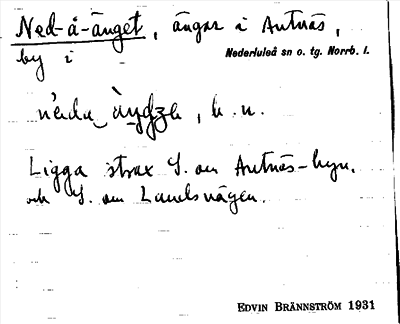 Ned-å-änget, ängar i Antnäs,
by i Nederluleå sn o. tg. Norrb. l.
Ligga strax S. om Antnäs-byn,
och S. om Landsvägen.
EDVIN BRÄNNSTRÖM 1931